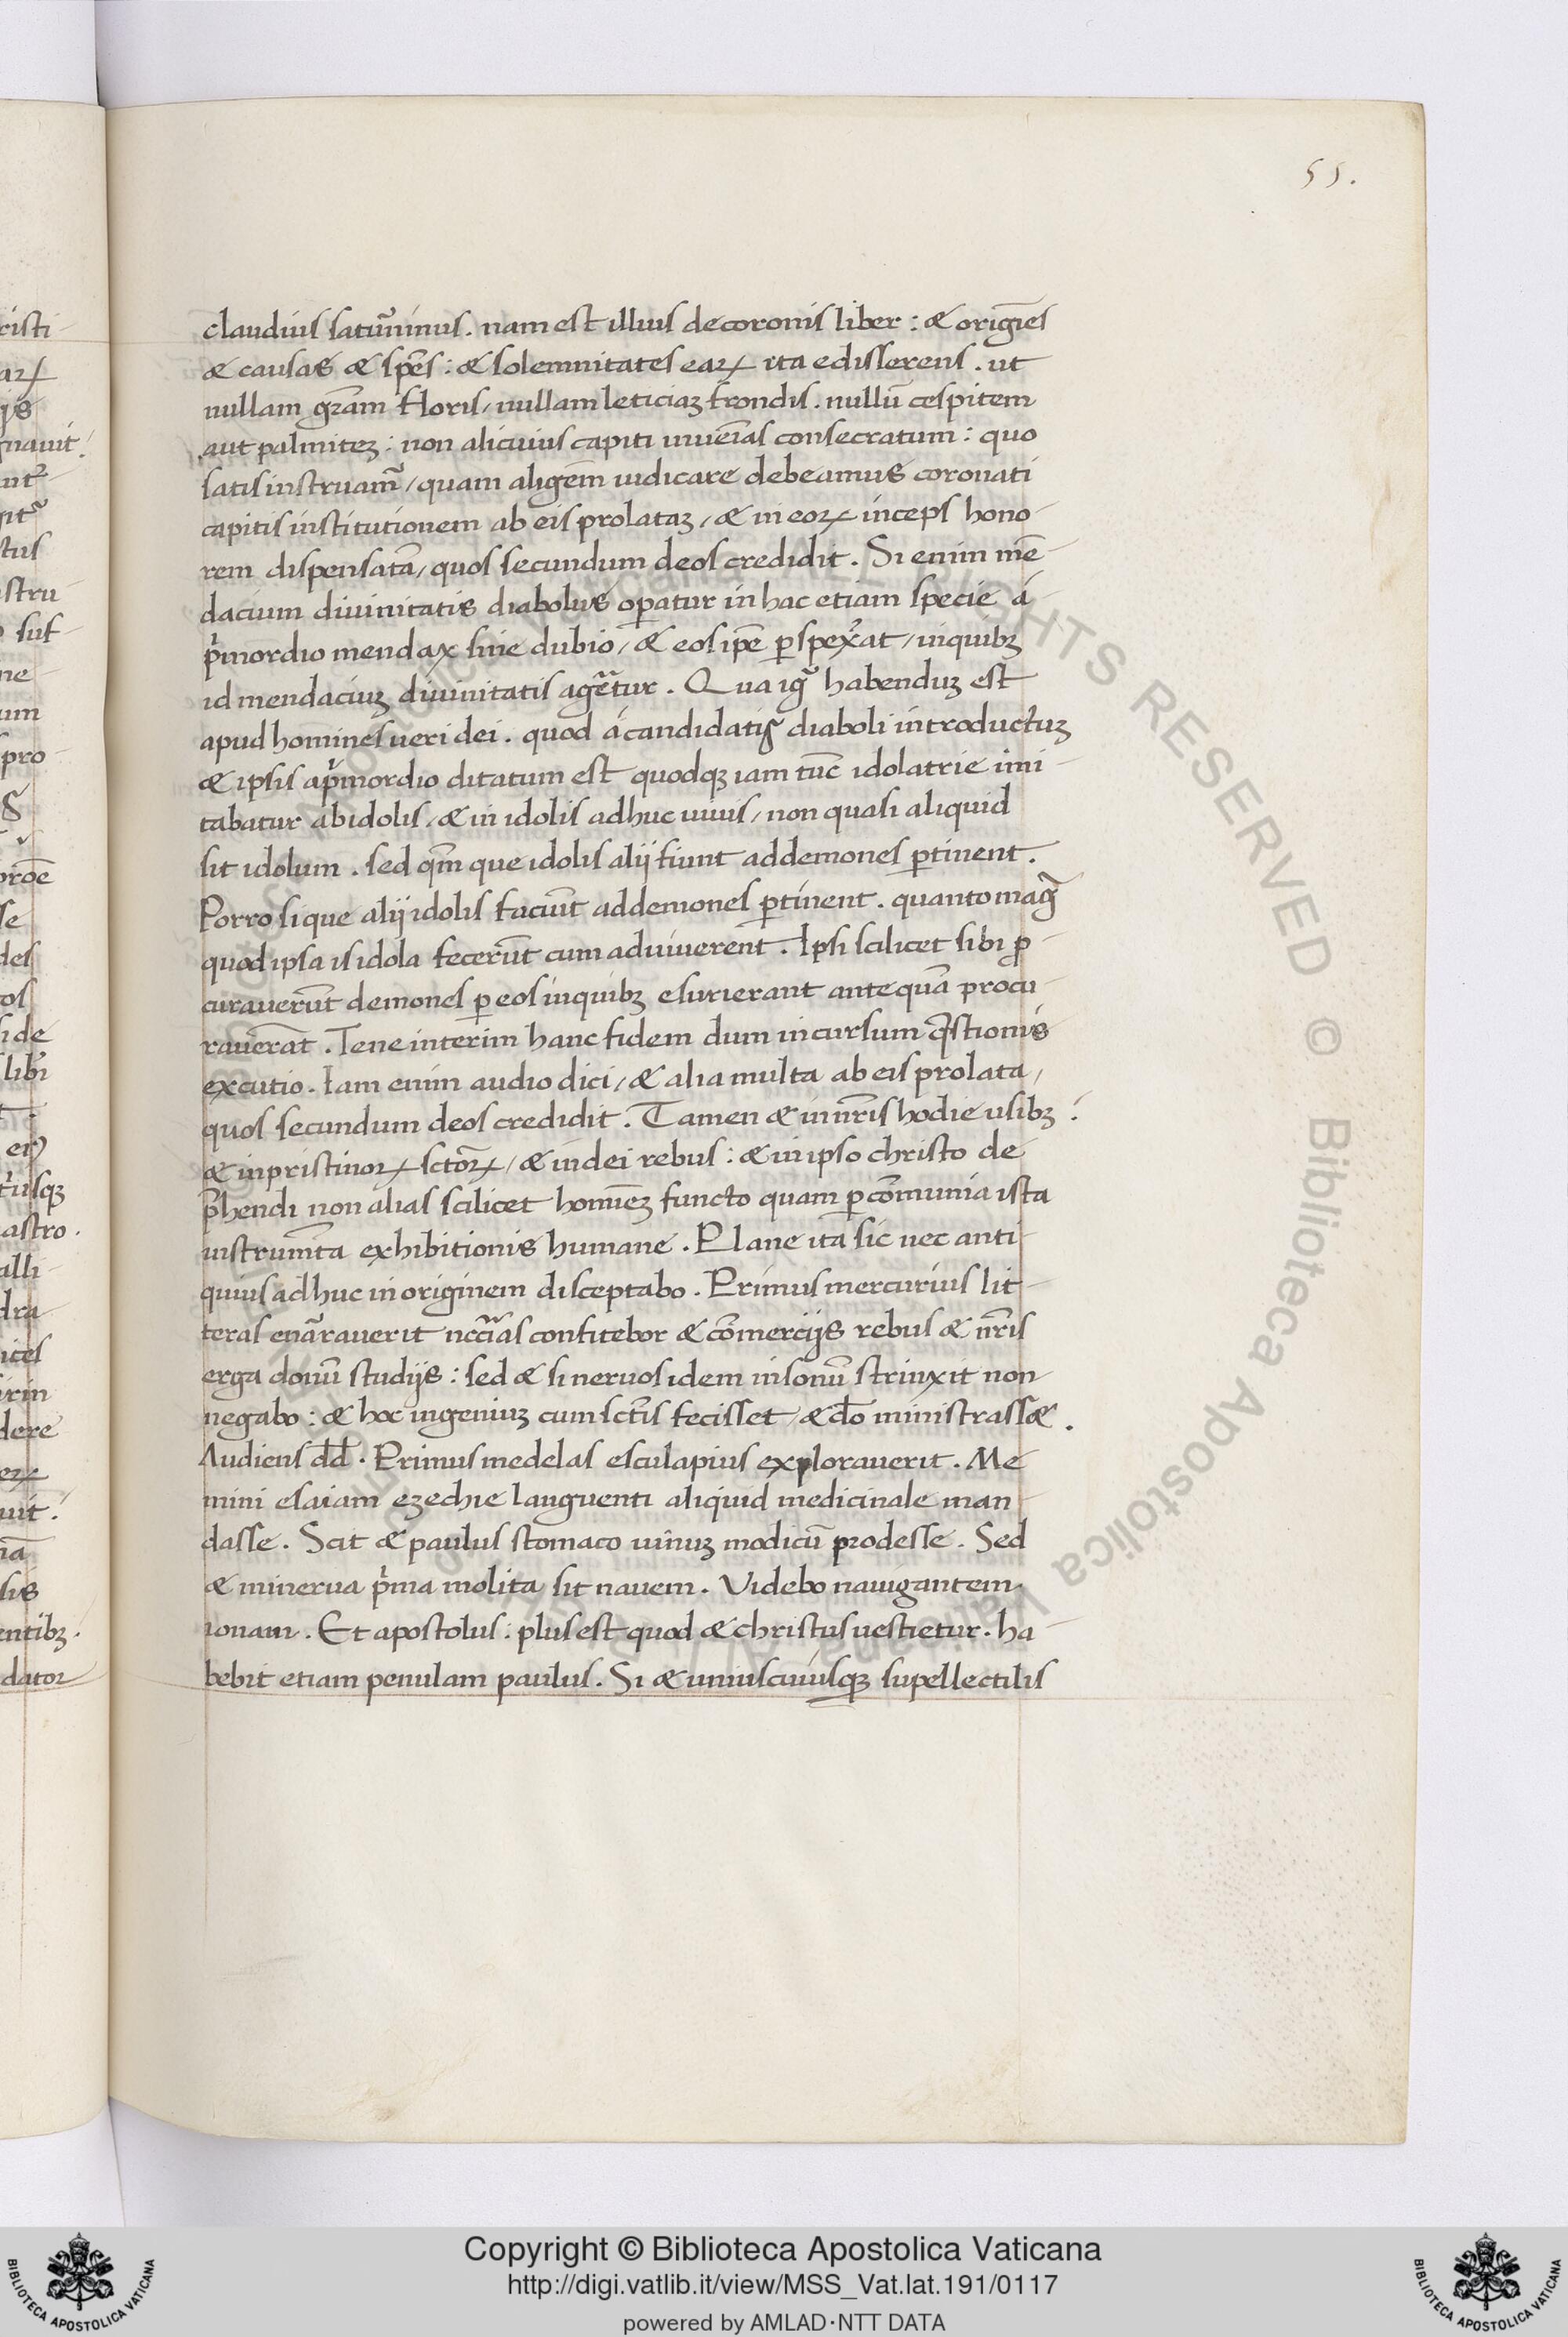 55.
claudius saturninus. nam est illius de coronis liber : & origīes
& causas & spēs : & solemnitates eaꝝ ita edisserens . ut
nullam grām floris / nullam leticiaꝫ frondis . nullū cespitem
aut palmiteꝫ : non alicuius capiti inveīas consecratum : quo
satis instruamᷣ / quam aligēm iudicare debeamus coronati
capitis institutionem ab eis prolataꝫ / & in eoꝝ inceps hono
rem dispensatā / quos secundum deos credidit . Si enim mē
dacium divinitatis diabolus oꝑatur in hac etiam specie á
pͥmordio mendax sine dubio / & eos ipē ꝑspexͣat / in quibꝫ
id mendaciuꝫ divinitatis agēᷣtur . Qua igᷣ habenduꝫ est
apud homines veri dei . quod á candidatis diaboli introductuꝫ
& ipsis a pͥmordio ditatum est quodqꝫ iam tūc idolatrie imi
tabatur ab idolis / & in idolis adhuc vivis / non quasi aliquid
sit idolum . sed qm̄ que idolis alij fiunt ad demones ꝑtinent .
Porro si que alij idolis faciūt ad demones ꝑtinent . quanto magᷤ
quod ipsa is idola fecerūt cum adviverent . Ipsi scilicet sibi ꝓ
curaverūt demones ꝑ eos in quibꝫ esurierant antequā procu
raverāt . Tene interim hanc fidem dum incursum q̄stionis
excutio . Iam enim audio dici / & alia multa ab eis prolata /
quos secundum deos credidit . Tamen & in nr̄is hodie usibꝫ :
& in pristinoꝝ sctōꝝ / & in dei rebus : & in ipso christo de
p̄hendi non alias scilicet homīeꝫ functo quam ꝑ cōmunia ista
instrumēta exhibitionis humane . Plane ita sic nec anti
quius adhuc in originem disceptabo . Primus mercurius lit
teras enāraverit nccīas confitebor & cōmercijs rebus & nr̄is
erga donū studijs : sed & si nervos idem in sonū strinxit non
negabo : & hoc ingeniuꝫ cum sctīs fecisset / & dō ministrass& .
Audiens dd̄ . Primus medelas esculapius exploraverit . Me
mini esaiam ezechie languenti aliquid medicinale man
dasse . Scit & paulus stomaco vinuꝫ modicū prodesse . Sed
& minerva pͥma molita sit navem . Videbo navigantem
ionam . Et apostolus : plus est quod & christus vestietur . ha
bebit etiam penulam paulus . Si & uniuscuiusqꝫ supellectilis
Copyright © Biblioteca Apostolica Vaticana
http://digi.vatlib.it/view/MSS_Vat.lat.191/0117
powered by AMLAD·NTT DATA